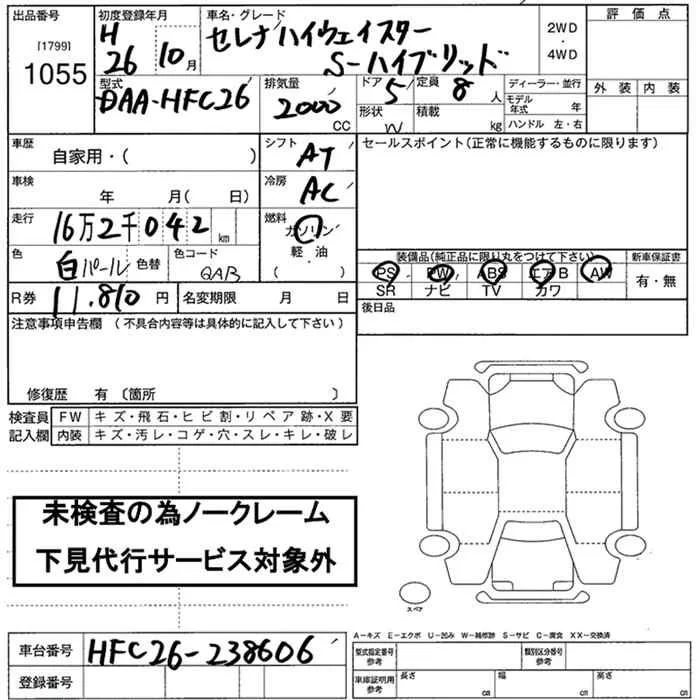 出品番号 初度登録年月 車名・グレード 評価点
[1799] H セレナハイウェイスター 2WD
1055 26 10月 S-ハイブリッド ・ 4WD
型式 排気量 ドア 定員 ディーラー・並行 外装 内装
DAA-HFC26 2000 CC 5 8 人 モデル年式 年
形状 W 積載 kg ハンドル 左・右
車歴 自家用・( ) シフト AT セールスポイント(正常に機能するものに限ります)
車検 年 月( 日) 冷房 AC
走行 16万2千042 km 燃料 ガソリン
軽・油
( )
色 白パール 色替 色コード QAB
装備品(純正品に限り丸をつけて下さい) 新車保証書
PS PW ABS エアB AW 有・無
SR ナビ TV カワ
R券 11.810 円 名変期限 月 日 後日品
注意事項申告欄 (不具合内容等は具体的に記入して下さい)
修復歴 有 〔箇所 〕
検査員 FW キズ・飛石・ヒビ割・リペア跡・X要
記入欄 内装 キズ・汚レ・コゲ・穴・スレ・キレ・破レ
未検査の為ノークレーム
下見代行サービス対象外
スペア
A-キズ E-エクボ U-凹み W-補修跡 S-サビ C-腐食 XX-交換済
車台番号 HFC26-238606 型式指定番号 参考 類別区分番号 参考
登録番号 車庫証明用 参考 長さ cm 幅 cm 高さ cm